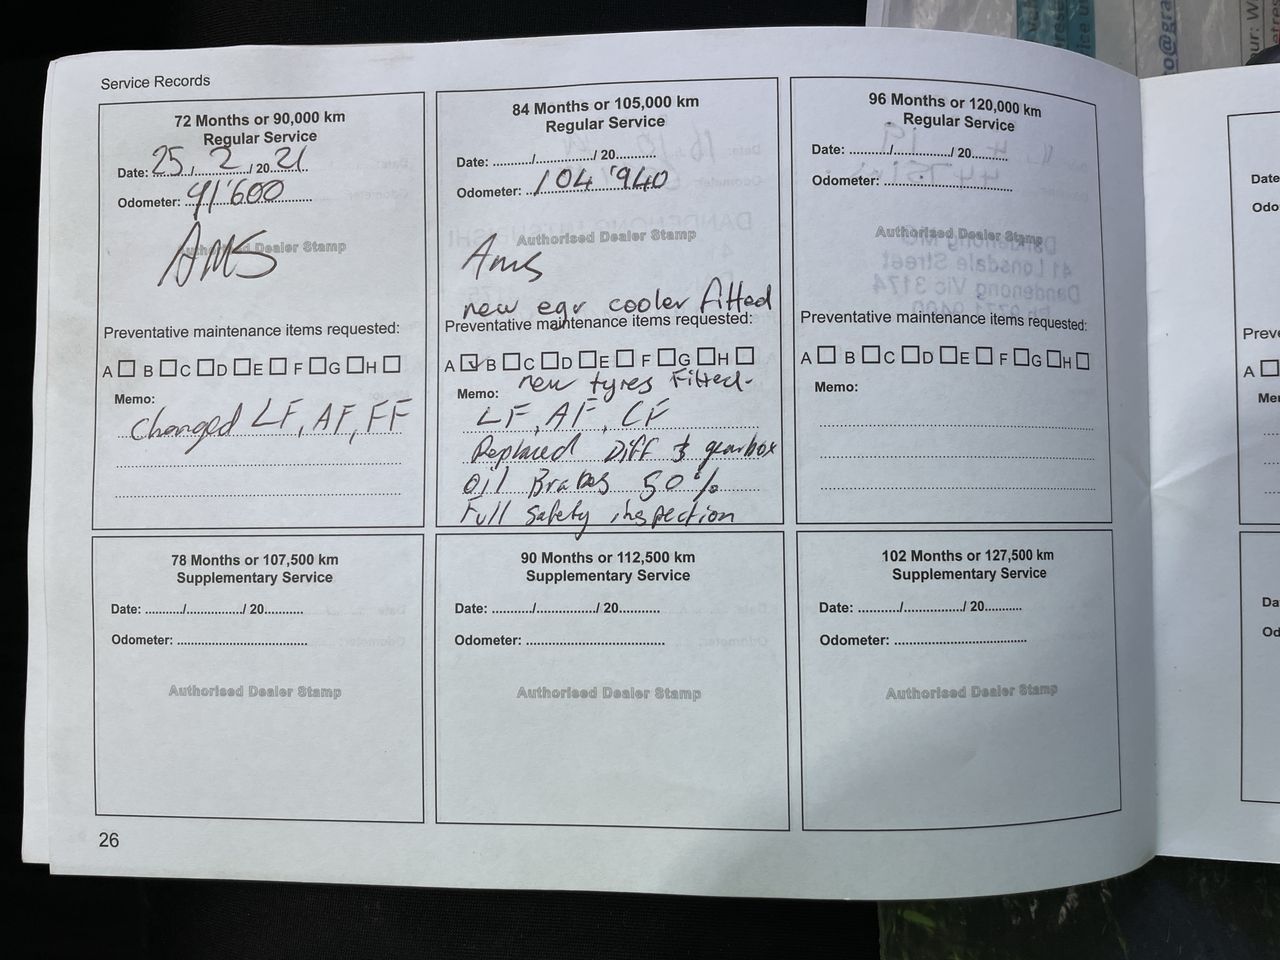 Service Records
72 Months or 90,000 km
Regular Service
Date: 25 / 2 / 20 21
Odometer: 91'600
Authorised Dealer Stamp
AMS
Preventative maintenance items requested:
A □ B □ C □ D □ E □ F □ G □ H □
Memo:
Changed LF, AF, FF
84 Months or 105,000 km
Regular Service
Date: ........../............../ 20..........
Odometer: 104'940
Authorised Dealer Stamp
Ams
new egr cooler fitted
Preventative maintenance items requested:
A ☑ B □ C □ D □ E □ F □ G □ H □
new tyres Fitted-
Memo:
LF, AF, CF
Replaced Diff & gearbox
Oil Brakes 50%
Full Safety inspection
96 Months or 120,000 km
Regular Service
Date: ........../............../ 20..........
Odometer: ................................
Authorised Dealer Stamp
Preventative maintenance items requested:
A □ B □ C □ D □ E □ F □ G □ H □
Memo:
78 Months or 107,500 km
Supplementary Service
Date: ........../............../ 20..........
Odometer: ................................
Authorised Dealer Stamp
90 Months or 112,500 km
Supplementary Service
Date: ........../............../ 20..........
Odometer: ................................
Authorised Dealer Stamp
102 Months or 127,500 km
Supplementary Service
Date: ........../............../ 20..........
Odometer: ................................
Authorised Dealer Stamp
26
Date
Odo
Preve
A □
Mer
Da
Od